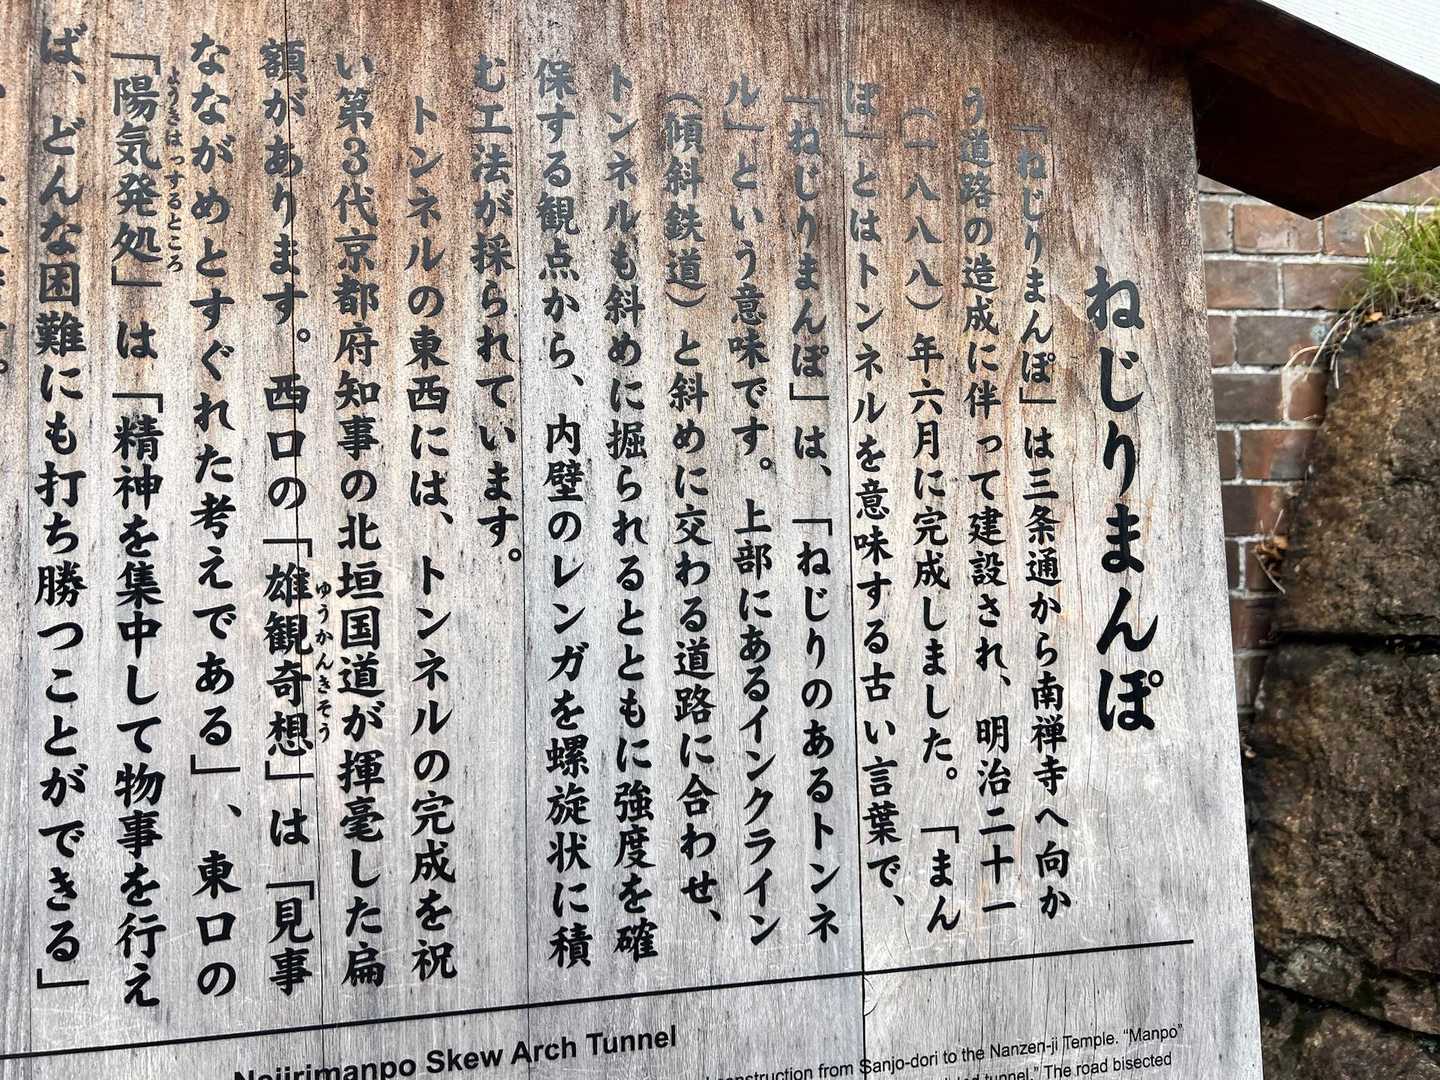 ねじりまんぽ
「ねじりまんぽ」は三条通から南禅寺へ向か
う道路の造成に伴って建設され、明治二十一
(一八八八)年六月に完成しました。「まん
ぽ」とはトンネルを意味する古い言葉で、
「ねじりまんぽ」は、「ねじりのあるトンネ
ル」という意味です。上部にあるインクライン
(傾斜鉄道)と斜めに交わる道路に合わせ、
トンネルも斜めに掘られるとともに強度を確
保する観点から、内壁のレンガを螺旋状に積
む工法が採られています。
トンネルの東西には、トンネルの完成を祝
い第3代京都府知事の北垣国道が揮毫した扁
額があります。西口の「雄観奇想」は「見事
ゆうかんきそう
なながめとすぐれた考えである」、東口の
「陽気発処」は「精神を集中して物事を行え
ようきはっするところ
ば、どんな困難にも打ち勝つことができる」
Nejirimanpo Skew Arch Tunnel
construction from Sanjo-dori to the Nanzen-ji Temple. “Manpo”
tunnel.” The road bisected